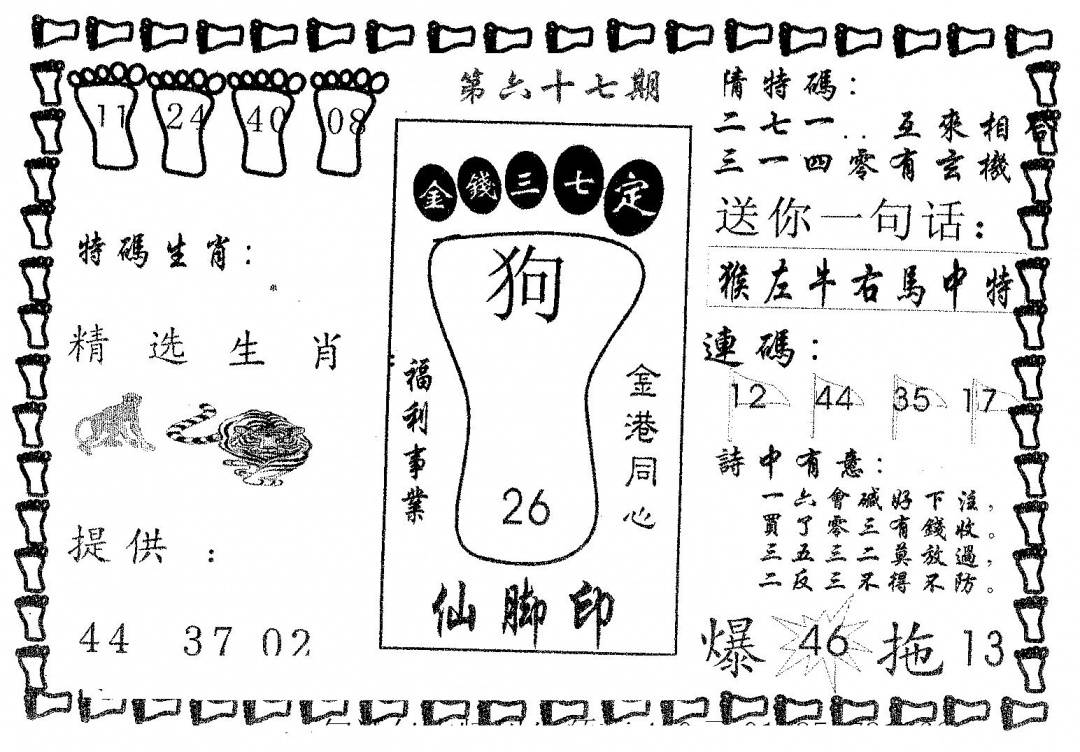 第六十七期
11 24 40 08
特碼生肖：
精选生肖
提供：
44 37 02
金錢三七定
狗
福利事業
金港同心
26
仙脚印
猜特碼：
二七一..互來相合
三一四零有玄機
送你一句话：
猴左牛右馬中特
連碼：
12 44 35 17
詩中有意：
一六會碱好下注，
買了零三有錢收。
三五三二莫放過，
二反三不得不防。
爆 46 拖 13